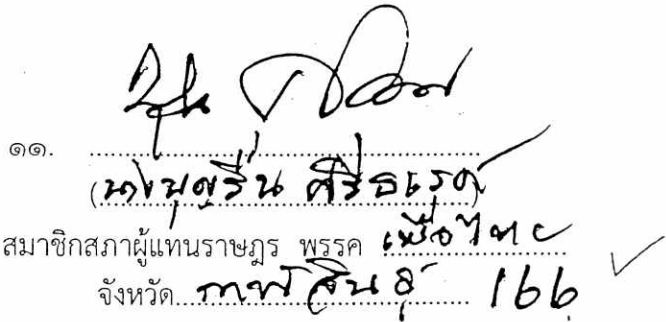 ๑๑. ........................................
(นางบุญรื่น ศรีธเรศ)
สมาชิกสภาผู้แทนราษฎร พรรค เพื่อไทย
จังหวัด กาฬสินธุ์ 166